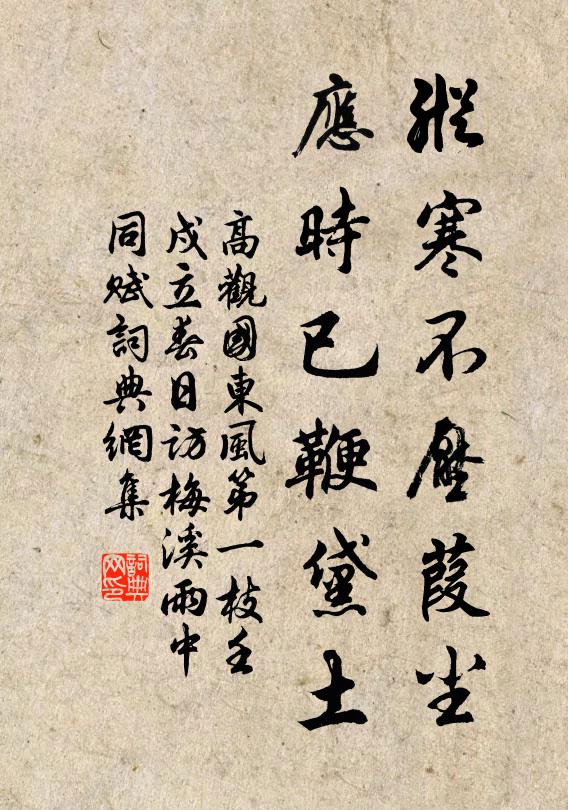 縱寒不壓葭尘
應時已鞭黛土
高觀國東風第一枝壬
戌立春日訪梅溪雨中
同賦詞典網集
詞典
网印